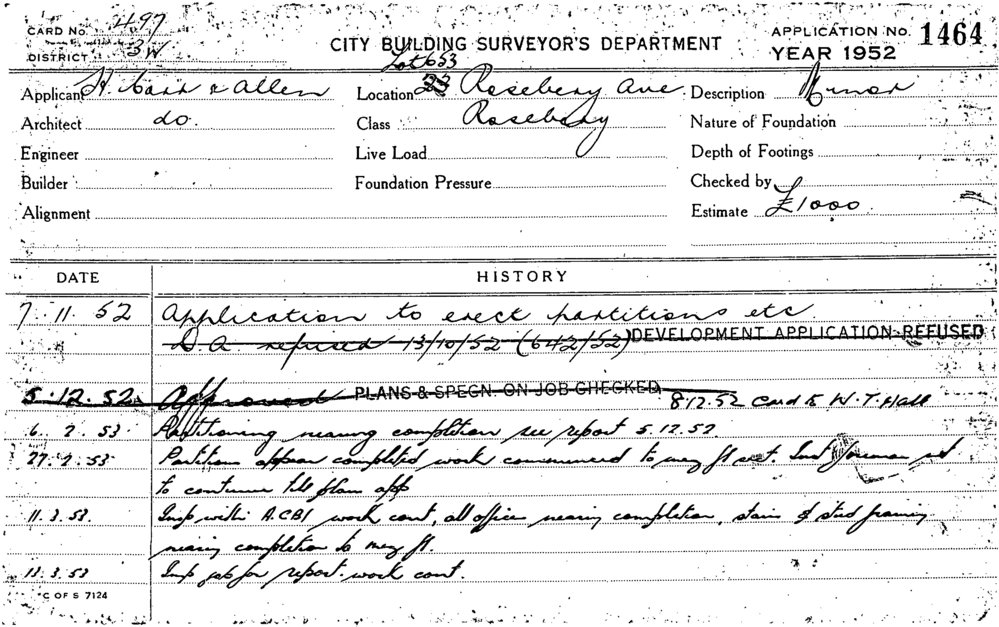 CARD No. 497
DISTRICT 3W
CITY BUILDING SURVEYOR'S DEPARTMENT
APPLICATION No. 1464
YEAR 1952
Lot 653
Applicant H. Carr & Allen Location 23 Rosebery Ave Description Minor
Architect do. Class Rosebery Nature of Foundation
Engineer Live Load Depth of Footings
Builder Foundation Pressure Checked by
Alignment Estimate £1000
DATE HISTORY
7. 11. 52 Application to erect partitions etc
D.A refused 13/10/52 (642/52) DEVELOPMENT APPLICATION REFUSED
5.12.52. Approved PLANS & SPECN. ON JOB CHECKED 8.12.52 Card to W.T. Hall
6. 2. 53. Partitioning nearing completion see report 5.12.52.
27.2.53. Partitions appear completed work commenced to mezz fl
to continue till plans app
11.3.53. Insp with A.CBS work cont, all offices nearing completion, stairs & stud framing
nearing completion to mezz fl.
13.3.53 Insp job for report. work cont.
C OF S 7124